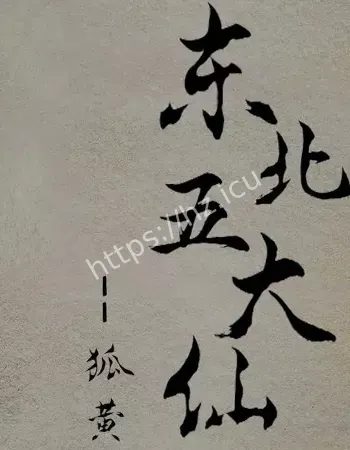 东北亚大仙
——狐黄
https://hz.icu